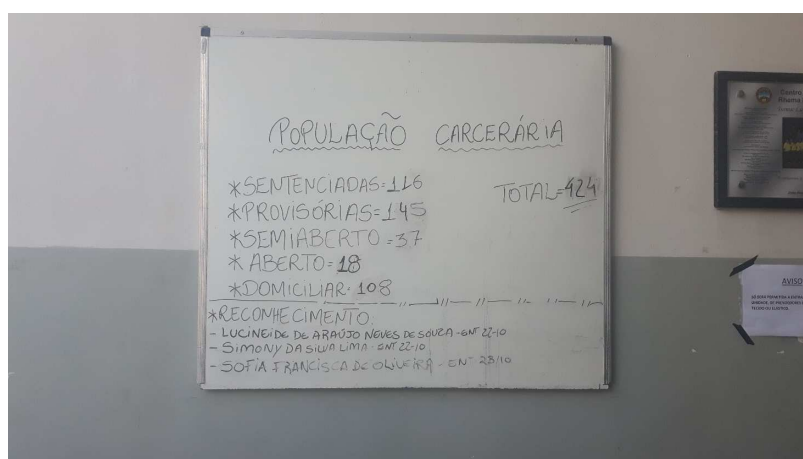 POPULAÇÃO CARCERÁRIA
*SENTENCIADAS=116
TOTAL=424
*PROVISÓRIAS=145
*SEMIABERTO=37
*ABERTO=18
*DOMICILIAR=108
*RECONHECIMENTO
- LUCINEIDE DE ARAÚJO NEVES DE SOUZA-ENT 22-10
- SIMONY DA SILVA LIMA-ENT 22-10
- SOFIA FRANCISCA DE OLIVEIRA-ENT 23/10
AVISO